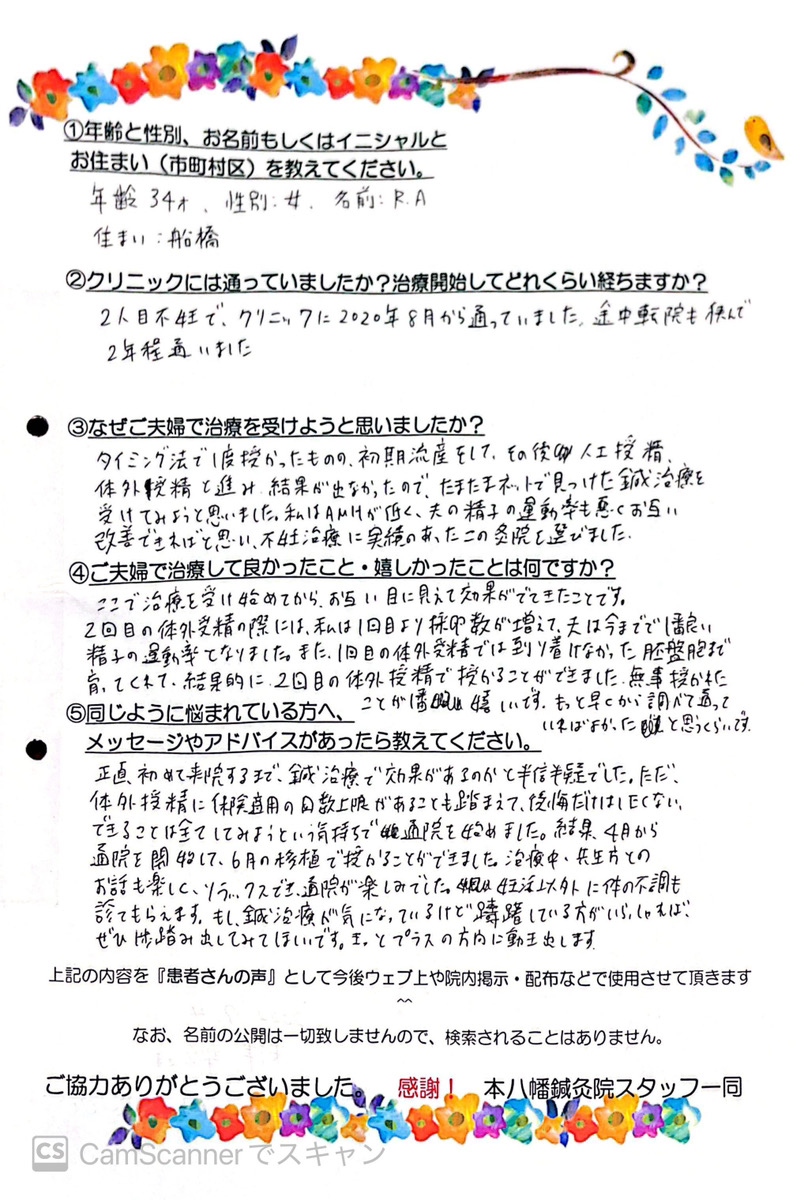 ①年齢と性別、お名前もしくはイニシャルと
お住まい（市町村区）を教えてください。
年齢 34才、性別:女、名前:R.A
住まい：船橋
②クリニックには通っていましたか？治療開始してどれくらい経ちますか？
2人目不妊で、クリニックに2020年8月から通っていました。途中転院も挟んで
2年程通いました
③なぜご夫婦で治療を受けようと思いましたか？
タイミング法で1度授かったものの、初期流産をして、その後人工授精、
体外授精と進み、結果が出なかったので、たまたまネットで見つけた鍼治療を
受けてみようと思いました。私はAMHが低く、夫の精子の運動率も悪くお互い
改善できればと思い、不妊治療に実績のあったこの灸院を選びました。
④ご夫婦で治療して良かったこと・嬉しかったことは何ですか？
ここで治療を受け始めてから、お互い目に見えて効果がでてきたことです。
2回目の体外受精の際には、私は1回目より採卵数が増えて、夫は今までで1番良い
精子の運動率となりました。また、1回目の体外受精では到り着けなかった胚盤胞まで
育ってくれて、結果的に、2回目の体外授精で授かることができました。無事授かれた
ことが1番嬉しいです。もっと早くから調べて通って
いればよかったと思うくらいです。
⑤同じように悩まれている方へ、
メッセージやアドバイスがあったら教えてください。
正直、初めて来院するまで、鍼治療で効果があるのかと半信半疑でした。ただ、
体外授精に保険適用の回数上限があることも踏まえて、後悔だけはしたくない、
できることは全てしてみようという気持ちで通院を始めました。結果、4月から
通院を開始して、6月の移植で授かることができました。治療中、先生方との
お話も楽しく、リラックスでき、通院が楽しみでした。妊活以外に体の不調も
診てもらえます。もし、鍼治療が気になっているけど躊躇している方がいらっしゃれば、
ぜひ1歩踏み出してみてほしいです。きっとプラスの方向に動き出します
上記の内容を『患者さんの声』として今後ウェブ上や院内掲示・配布などで使用させて頂きます
^^
なお、名前の公開は一切致しませんので、検索されることはありません。
ご協力ありがとうございました。 感謝！ 本八幡鍼灸院スタッフ一同
CS CamScannerでスキャン